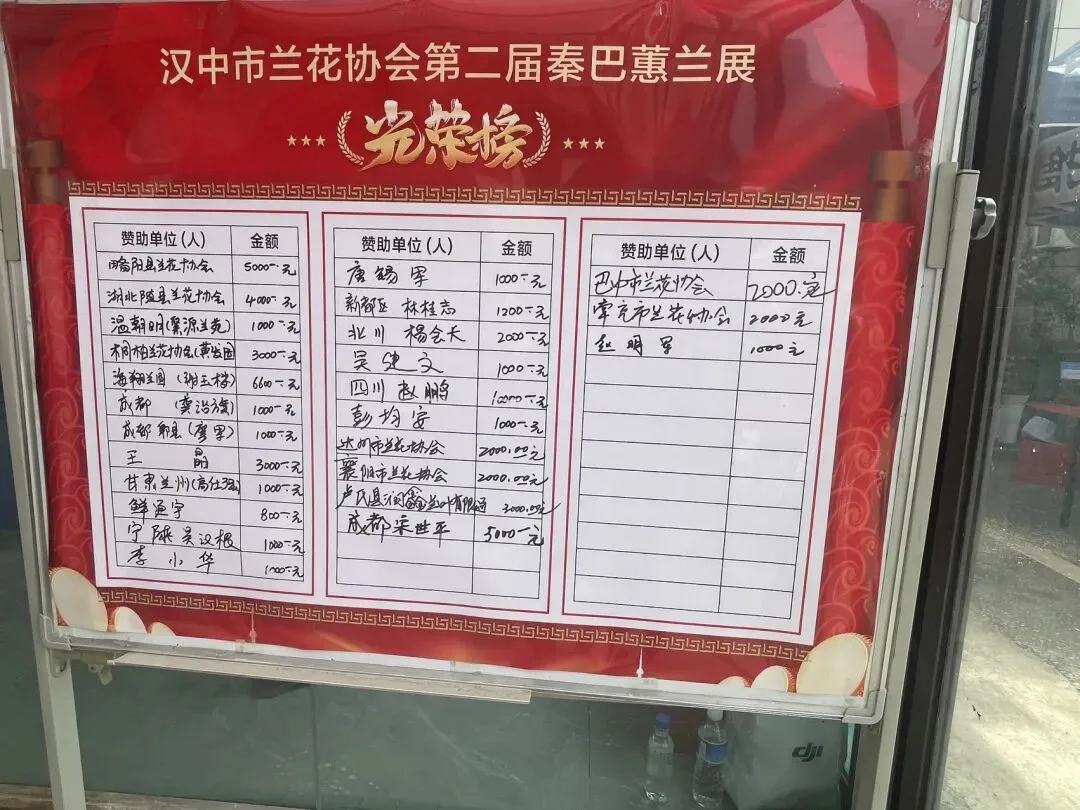 汉中市兰花协会第二届秦巴蕙兰展
光荣榜
赞助单位(人) 金额
略阳县兰花协会 5000.-元
湖北随县兰花协会 4000.-元
温朝明(粟源兰苑) 1000.-元
桐柏兰花协会(黄发国 3000.-元
海翔兰园 6600.-元
成都 1000.-元
成都郫县(廖军) 1000.-元
王晶 3000.-元
甘肃兰州(高仕强) 1000.-元
鲜通宇 800.-元
宁陕吴汉根 1000.-元
李小华 1000.-元
赞助单位(人) 金额
唐锡军 1000.-元
新都区 林桂志 1200.-元
北川 杨会天 2000.-元
吴建文 1000.-元
四川 赵鹏 元
彭均安 1000.-元
达州市兰花协会 2000.00元
襄阳市兰花协会 2000.00元
卢氏县润鑫兰叶有限公司 3000.00元
成都宋世平 5000.-元
赞助单位(人) 金额
巴中市兰花协会 2000.元
南充市兰花协会 2000元
赵明军 1000元
dji